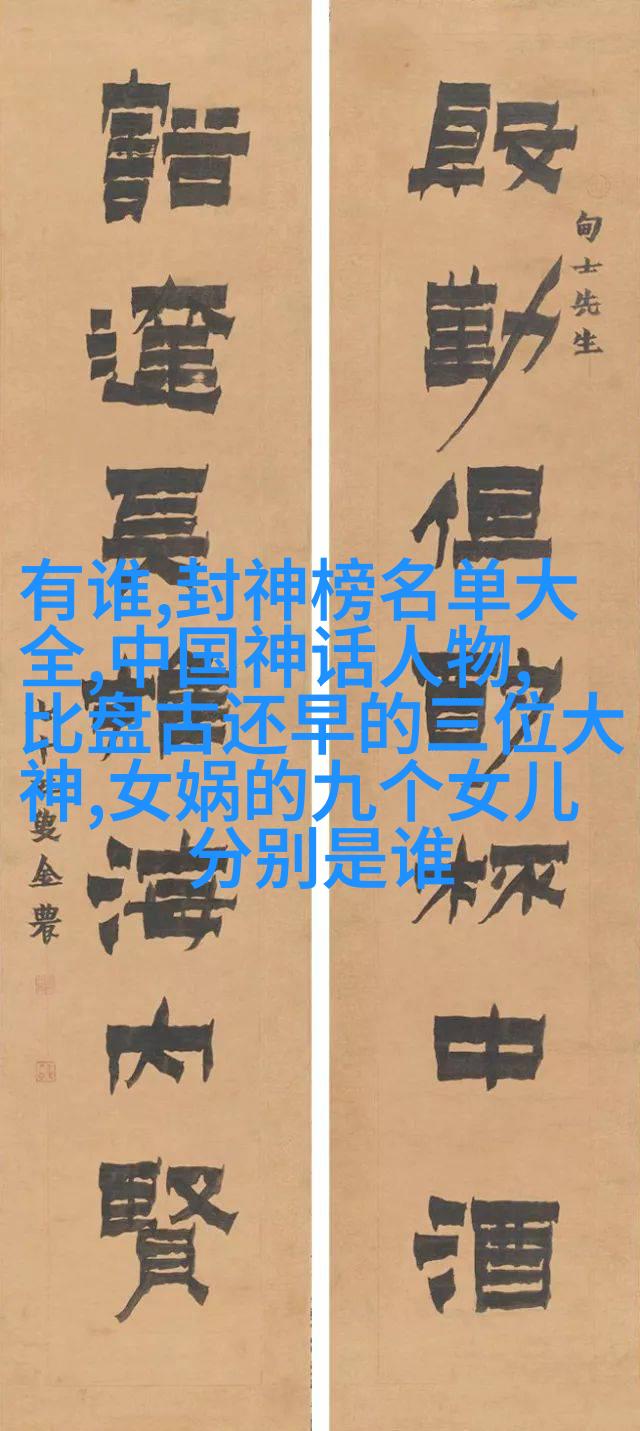 殷勤但酌杯中酒
甸士先生
豁達長
海内賢
七十
叟金農
有谁,封神榜名单大
全,中国神话人物,
比盘古还早的三位大
神,女娲的九个女儿
分别是谁